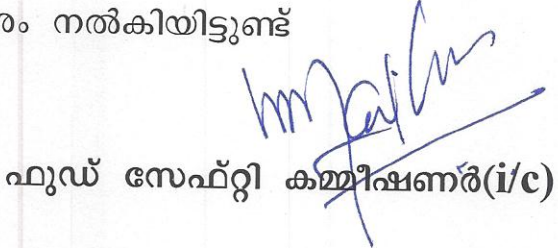 രം നൽകിയിട്ടുണ്ട്
ഫുഡ് സേഫ്റ്റി കമ്മീഷണർ(i/c)